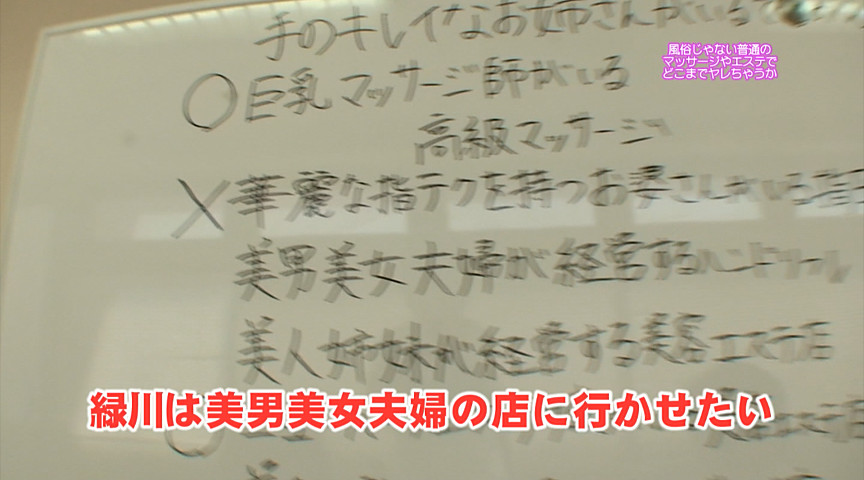 手のキレイなお姉さんがいる
風俗じゃない普通の
マッサージやエステで
どこまでヤレちゃうか
○巨乳マッサージ師がいる
高級マッサージ
×華麗な指テクを持つお婆さんがいる指圧
美男美女夫婦が経営するハンドリール
美人姉妹が経営する美容エステ店
緑川は美男美女夫婦の店に行かせたい